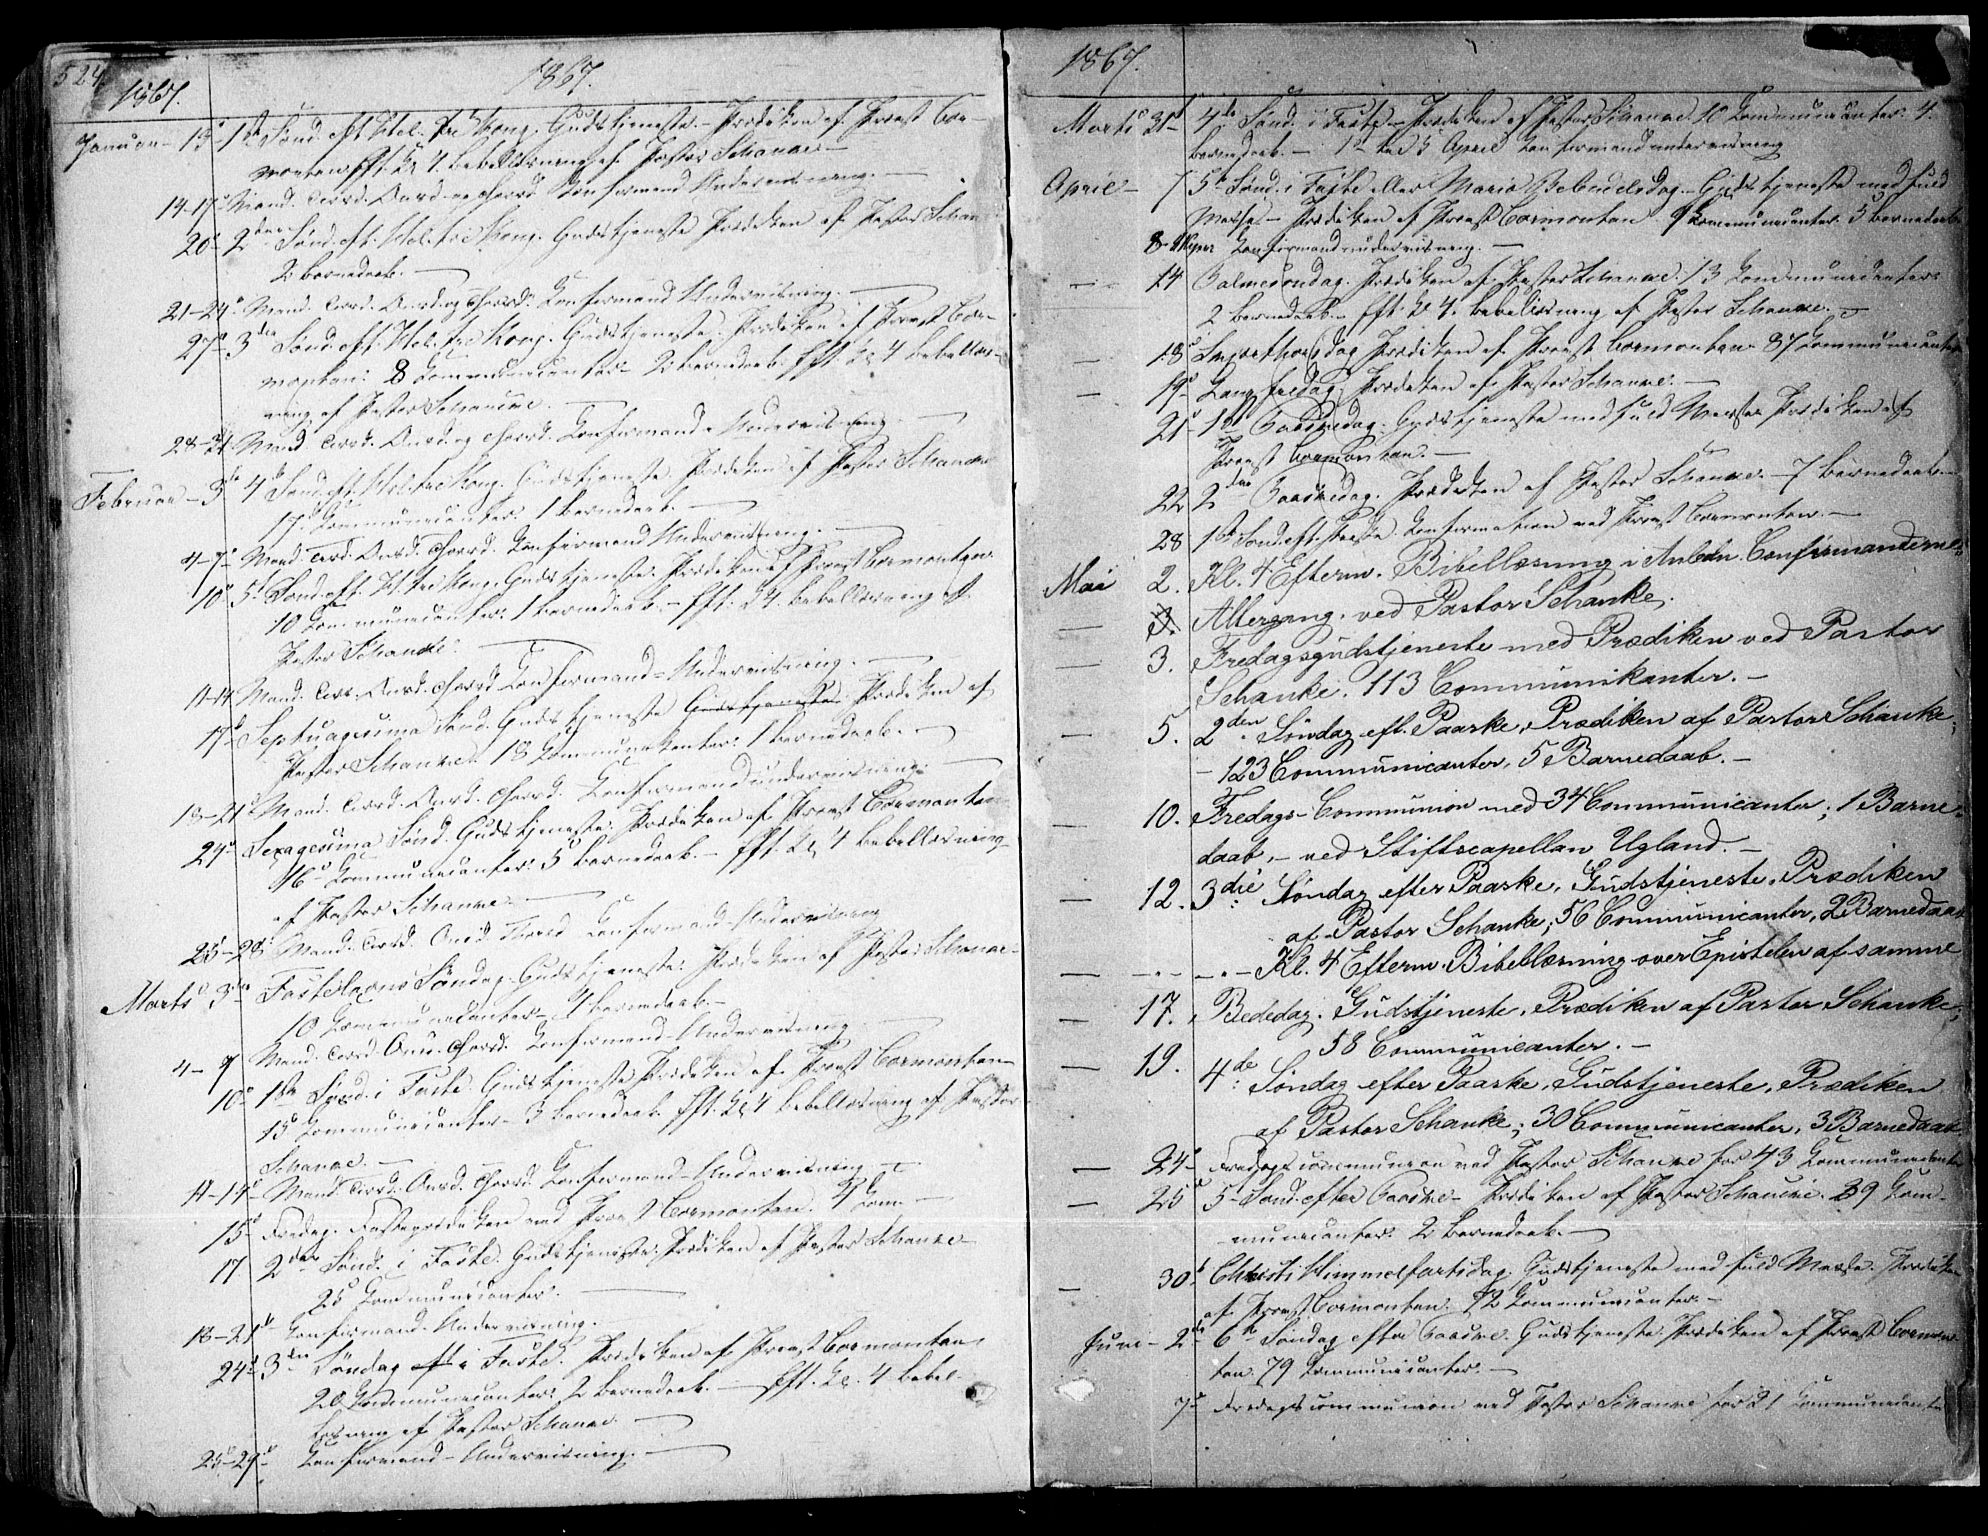 524.
1867.
1867.
Januar – 13de 1ste Sønd. eft. Hel. tre Kong. Gudstjeneste – Prædiken af Provst Cor-
montan Eft. Kl. 4. Bibellæsning af Pastor Schanke –
14–17de Mand. Tirsd. Onsd. og Thorsd. Konfirmand Undervisning. –
20de 2den Sønd. eft. Hel. tre Kong. Gudstjeneste Prædiken af Pastor Schanke
2 Barnedaab. –
21–24de Mand. Tirsd. Onsd. og Thorsd. Konfirmand Undervisning. –
27de 3die Sønd. eft. Hel. tre Kong. Gudstjeneste. Prædiken af Provst Cor-
montan: 8 Kommunicanter – 2 Barnedaab. Eft. Kl. 4 Bibellæs-
ning af Pastor Schanke. –
28– Mand. Tirsd. Onsd. og Thorsd. Konfirmand-Undervisning –
Februar – 3de 4de Sønd. eft. Hel. tre Kong. Gudstjeneste Prædiken af Pastor Schanke
17 Kommunicanter. 1 Barnedaab. –
4–7de Mand. Tirsd. Onsd. Thorsd. Konfirmand Undervisning. –
10de 5te Sønd. eft. H. tre Kong. Gudstjeneste. Prædiken af Provst Cormontan
10 Kommunicanter. 1 Barnedaab. – Eft. Kl. 4. Bibellæsning af
Pastor Schanke. –
11–14 Mand. Tirs. Onsd. Thorsd. Konfirmand-Undervisning. –
17de Septuagesima Sønd. Gudstjeneste Gudstjeneste Prædiken af
Pastor Schanke. 18 Kommunicanter. 1 Barnedaab. –
18–21de Mand. Tirsd. Onsd. Thorsd. Konfirmandundervisning. –
24de Sexagesima Sønd. Gudstjeneste. Prædiken af Provst Cormontan
16 Kommunicanter. 5 Barnedaab. – Eft. Kl. 4 Bibellæsning
af Pastor Schanke. –
25–28de Mand. Tirsd. Onsd. Thorsd Konfirmand-Undervisning
Marts 3die Fastelavns Søndag. Gudstjeneste. Prædiken af Pastor Schanke –
10 Kommunicanter – 1 Barnedaab. –
4–7 Mand. Tirsd. Ons. Thorsd. Konfirmand-Undervisning –
10de 1ste Sønd. i Faste. Gudstjeneste Prædiken af Provst Cormontan
15 Kommunicanter – 3 Barnedaab. Eft. Kl. 4 Bibellæsning af Pastor
Schanke. –
11–14de Mand. Tirsd. Onsd. Thorsd. Konfirmand-Undervisning –
15de Fredag. Fasteprædiken ved Provst Cormontan. 4 Kom –
17 2den Sønd. i Faste. Gudstjeneste. Prædiken af Pastor Schanke –
25 Kommunicanter. –
18–21de Konfirmand-Undervisning.
24de 3die Søndag eft i Faste. Prædiken af Provst Cormontan
20 Kommunicanter 2 Barnedaab. – Eft. Kl. 4 Bibel-
læsning af Pastor Schanke. –
25–29de Konfirmand-Undervisning. –
1867.
Marts 31te 4de Sønd. i Faste – Prædiken af Pastor Schanke 10 Kommunicanter. 4.
Barnedaab. – 1ste til 5 April Konfirmandundervisning
April – 7 5te Sønd. i Faste eller Maria Bebudelsdag. – Gudstjeneste med fuld
Messe – Prædiken af Provst Cormontan 9 Kommunicanter 5 Barnedaab
8– Konfirmandundervisning. –
14 Palmesøndag. Prædiken af Pastor Schanke. 13 Kommunicanter
2 Barnedaab – Eft. Kl. 4. Bibellæsning af Pastor Schanke. –
18de Skjærthorsdag Prædiken af Provst Cormontan 87 Kommunicanter
19de Langfredag, Prædiken af Pastor Schanke. –
21de 1ste Paaskedag. Gudstjeneste med fuld Messe Prædiken af
Provst Cormontan. –
22 2den Paaskedag. Prædiken af Pastor Schanke. – 7 Barnedaab –
28 1ste Sønd. eft. Paaske. Konfirmation ved Provst Cormontan. –
Mai 2. Kl. 4 Efterm. Bibellæsning i Anledn. Confirmandernes
3. Altergang. ved Pastor Schanke.
3. Fredagsgudstjeneste med Prædiken ved Pastor
Schanke. 113 Communikanter. –
5. 2den Søndag eft. Paaske, Prædiken af Pastor Schanke,
– 123 Communicanter, 5 Barnedaab. –
10. Fredags-Communion med 34 Communicanter; 1 Barne-
daab, – ved Stiftscapellan Ugland. –
12. 3die Søndag efter Paaske, Gudstjeneste, Prædiken
af Pastor Schanke; 56 Communicanter, 2 Barnedaab
Kl. 4 Efterm. Bibellæsning over Epistelen af samme
17. Bededag. Gudstjeneste, Prædiken af Pastor Schanke,
58 Communicanter. –
19. 4de Søndag efter Paaske, Gudstjeneste, Prædiken
af Pastor Schanke; 30 Communicanter, 3 Barnedaab
24de Fredagscommunion ved Pastor Schanke for 43 Kommunicanter
25de 5te Sønd. efter Paaske – Prædiken af Pastor Schanke. 39 Kom-
municanter. 2 Barnedaab. –
30te Christi Himmelfartsdag. Gudstjeneste med fuld Messe. Prædiken
af Provst Cormontan. 12 Kommunicanter. –
Juni – 2den 6te Søndag efter Paaske. Gudstjeneste. Prædiken af Provst Cormon-
tan. 79 Kommunicanter. –
7de Fredagscommunion ved Pastor Schanke for 21 Kommunicanter